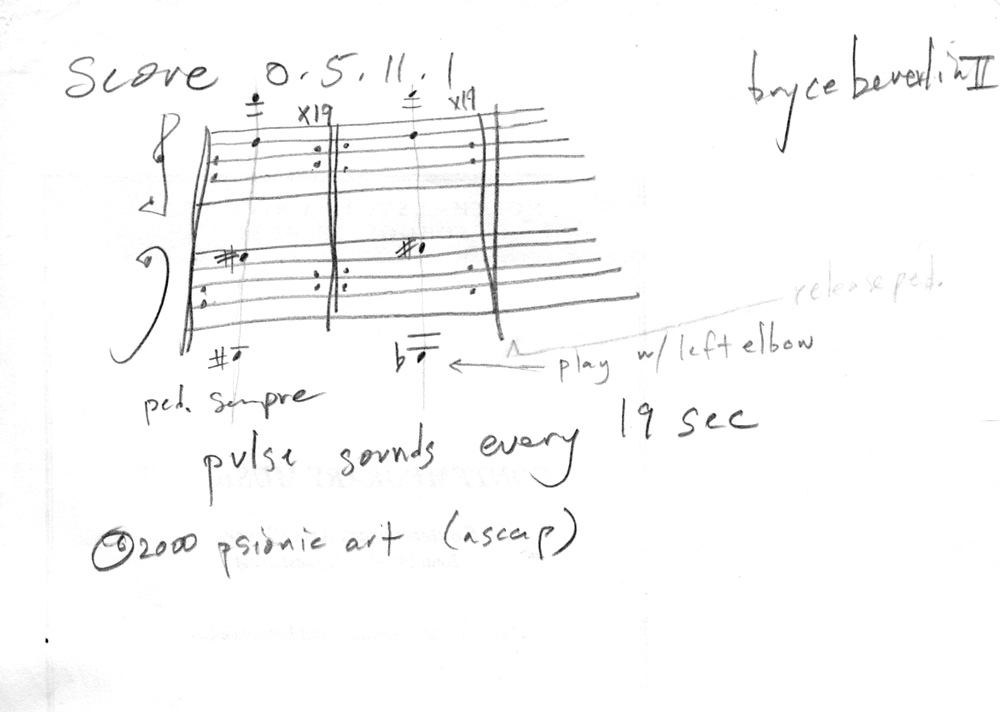 Score 0.5.11.1
bryce beverlin II
x19
x19
release ped.
play w/ left elbow
ped. sempre
pulse sounds every 19 sec
©2000 psionic art (ascap)